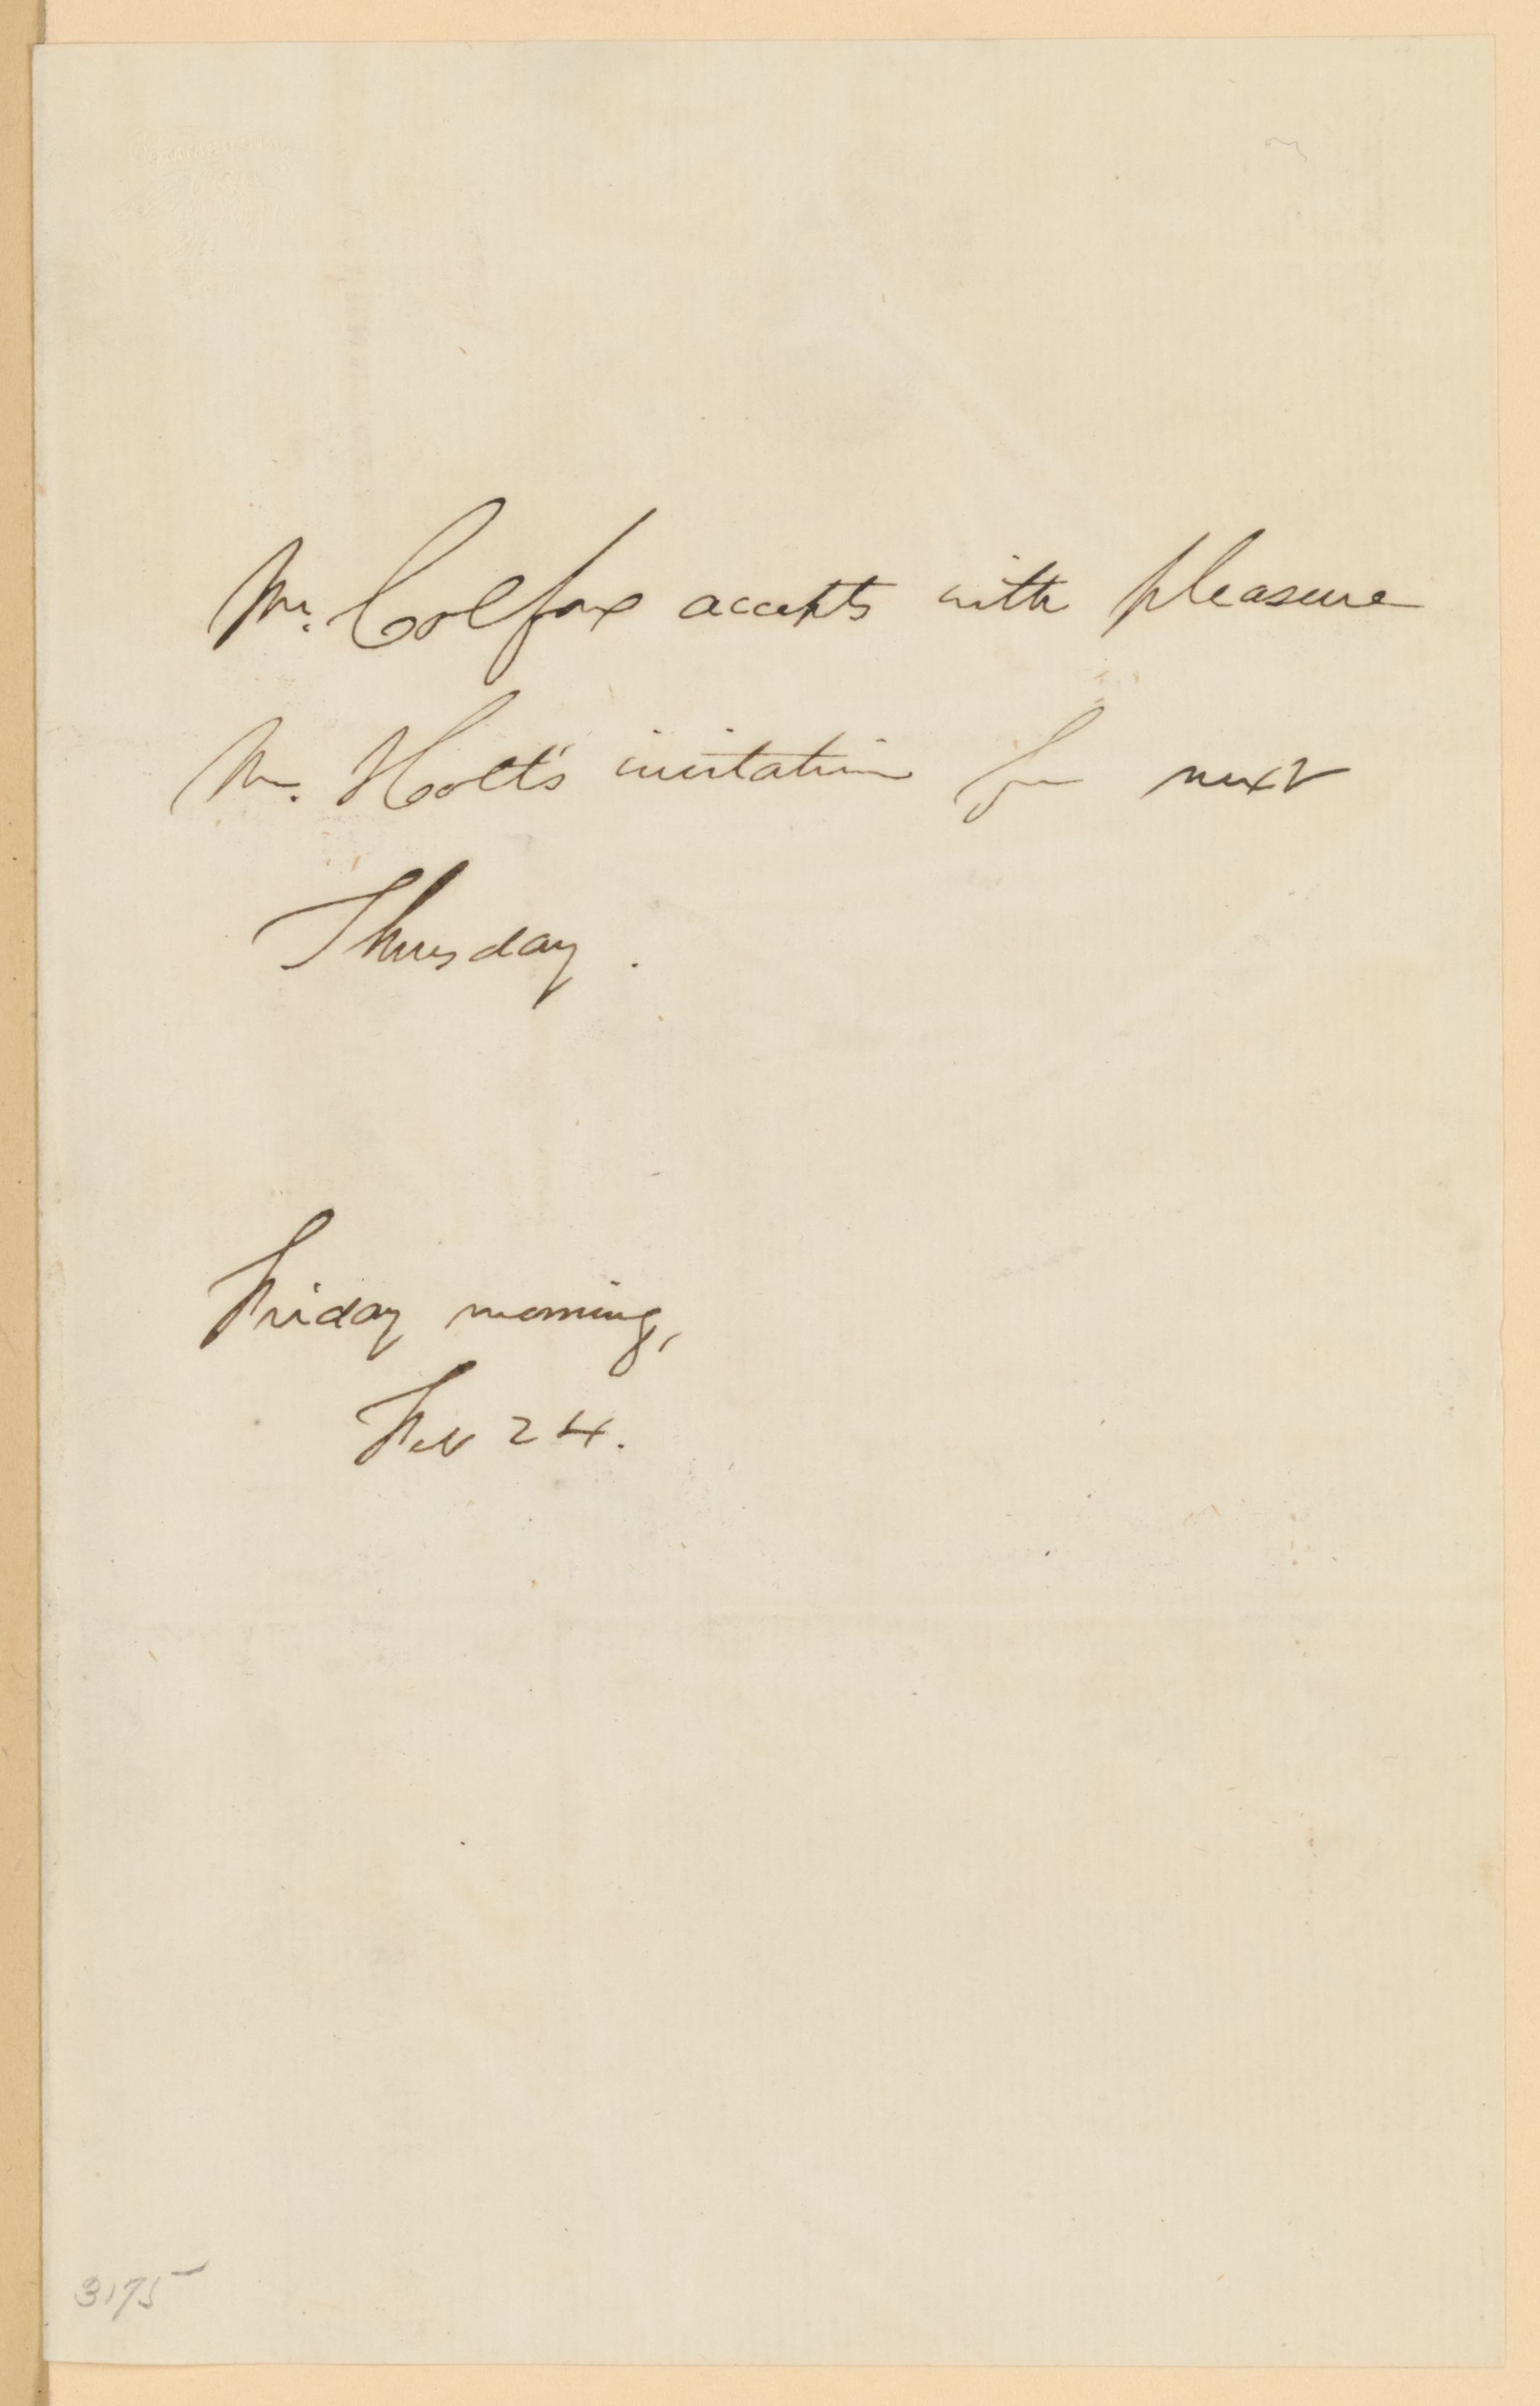 Mr. Colfax accepts with pleasure
Mr. Holt's invitation for next
Thursday.
Friday morning,
Feb 24.
3175